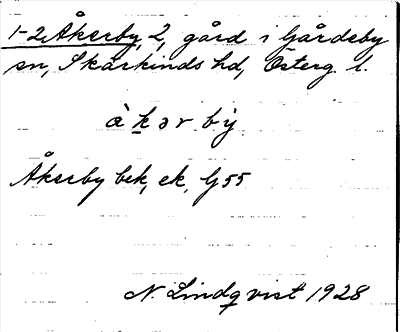 1-2 Åkerby, 2, gård i Gårdeby
sn, Skärkinds hd, Österg. l.
àkər bỳ
Åkerby bek, ek, G55
N. Lindqvist 1928